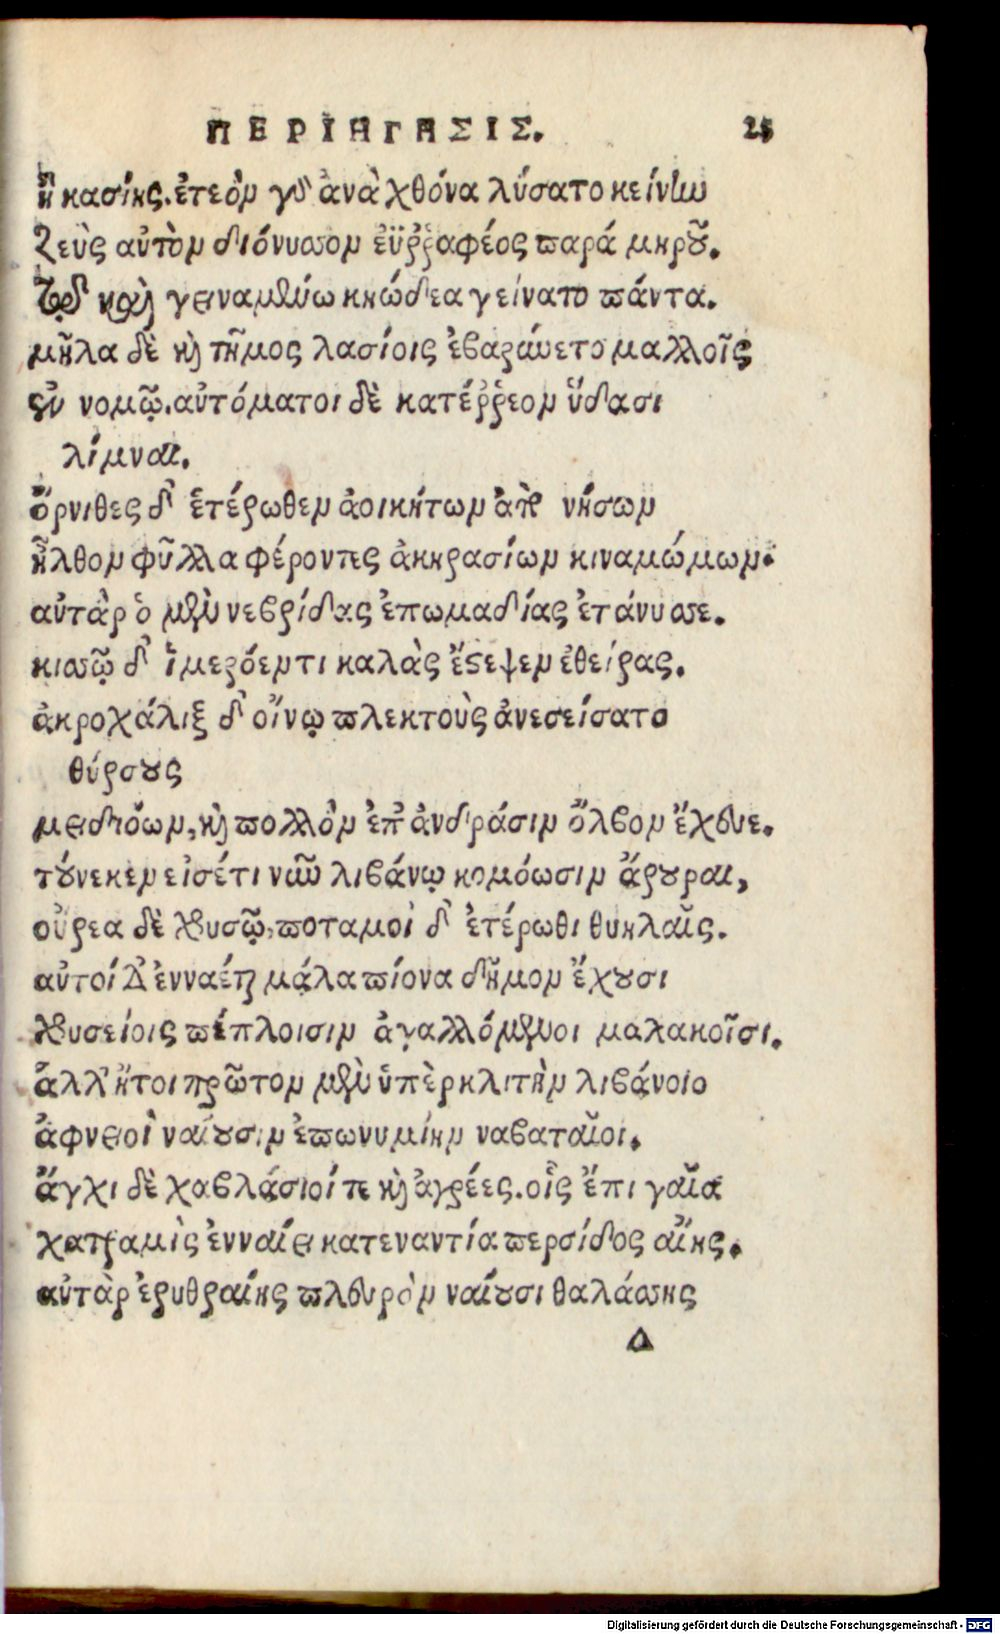 ΠΕΡΙΗΓΗΣΙΣ. 25
ἢ κασίης. ἐτεὸν γὸ ἀνὰ χθόνα λύσατο κείνην
Ζεὺς αὐτὸν διόνυσσον ἐϋῤῥαφέος παρά μηροῦ.
Τῷ δ καὶ γειναμένῳ κηώδεα γείνατο πάντα.
μῆλα δὲ καὶ τῆμος λασίοις ἐβαρώετο μαλλοῖς
ἐν νομῷ. αὐτόματοι δὲ κατέῤῥεον ὕδασι
λίμναι.
ὄρνιθες δ' ἑτέρωθεν ἀοικήτων ἀπὸ νήσων
ἦλθον φῦλλα φέροντες ἀκηρασίων κιναμώμων.
αὐτὰρ ὁ μὲν νεβρίδας ἐπωμαδίας ἐτάνυσσε.
κισσῷ δ' ἱμερόεντι καλὰς ἔστεψεν ἐθείρας.
ἀκροχάλιξ δ' οἴνῳ πλεκτοὺς ἀνεσείσατο
θύρσους
μειδιόων, καὶ πολλὸν ἐπ' ἀνδράσιν ὄλβον ἔχευε.
τούνεκεν εἰσέτι νῦν λιβάνῳ κομόωσιν ἄρουραι,
οὔρεα δὲ χρυσῷ, ποταμοὶ δ' ἑτέρωθι θυηλαῖς.
αὐτοί δ' ἐνναέται μάλα πίονα δῆμον ἔχουσι
χρυσείοις πέπλοισιν ἀγαλλόμενοι μαλακοῖσι.
ἀλλ' ἤτοι πρῶτον μὲν ὑπὲρ κλιτὴν λιβάνοιο
ἀφνειοὶ ναίουσιν ἐπωνυμίην ναβαταῖοι.
ἄγχι δὲ χαβλάσιοί τε καὶ ἀγρέες. οἷς ἔπι γαῖα
χατραμὶς ἐνναίει κατεναντία περσίδος αἴης.
αὐτὰρ ἐρυθραίης πλευρὸν ναίουσι θαλάσσης
Δ
Digitalisierung gefördert durch die Deutsche Forschungsgemeinschaft - DFG